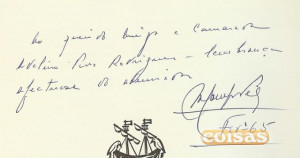 Ao querido amigo e camarada
Adelino Pais Rodrigues – lembrança
afectuosa do
Fev. 65
coisas